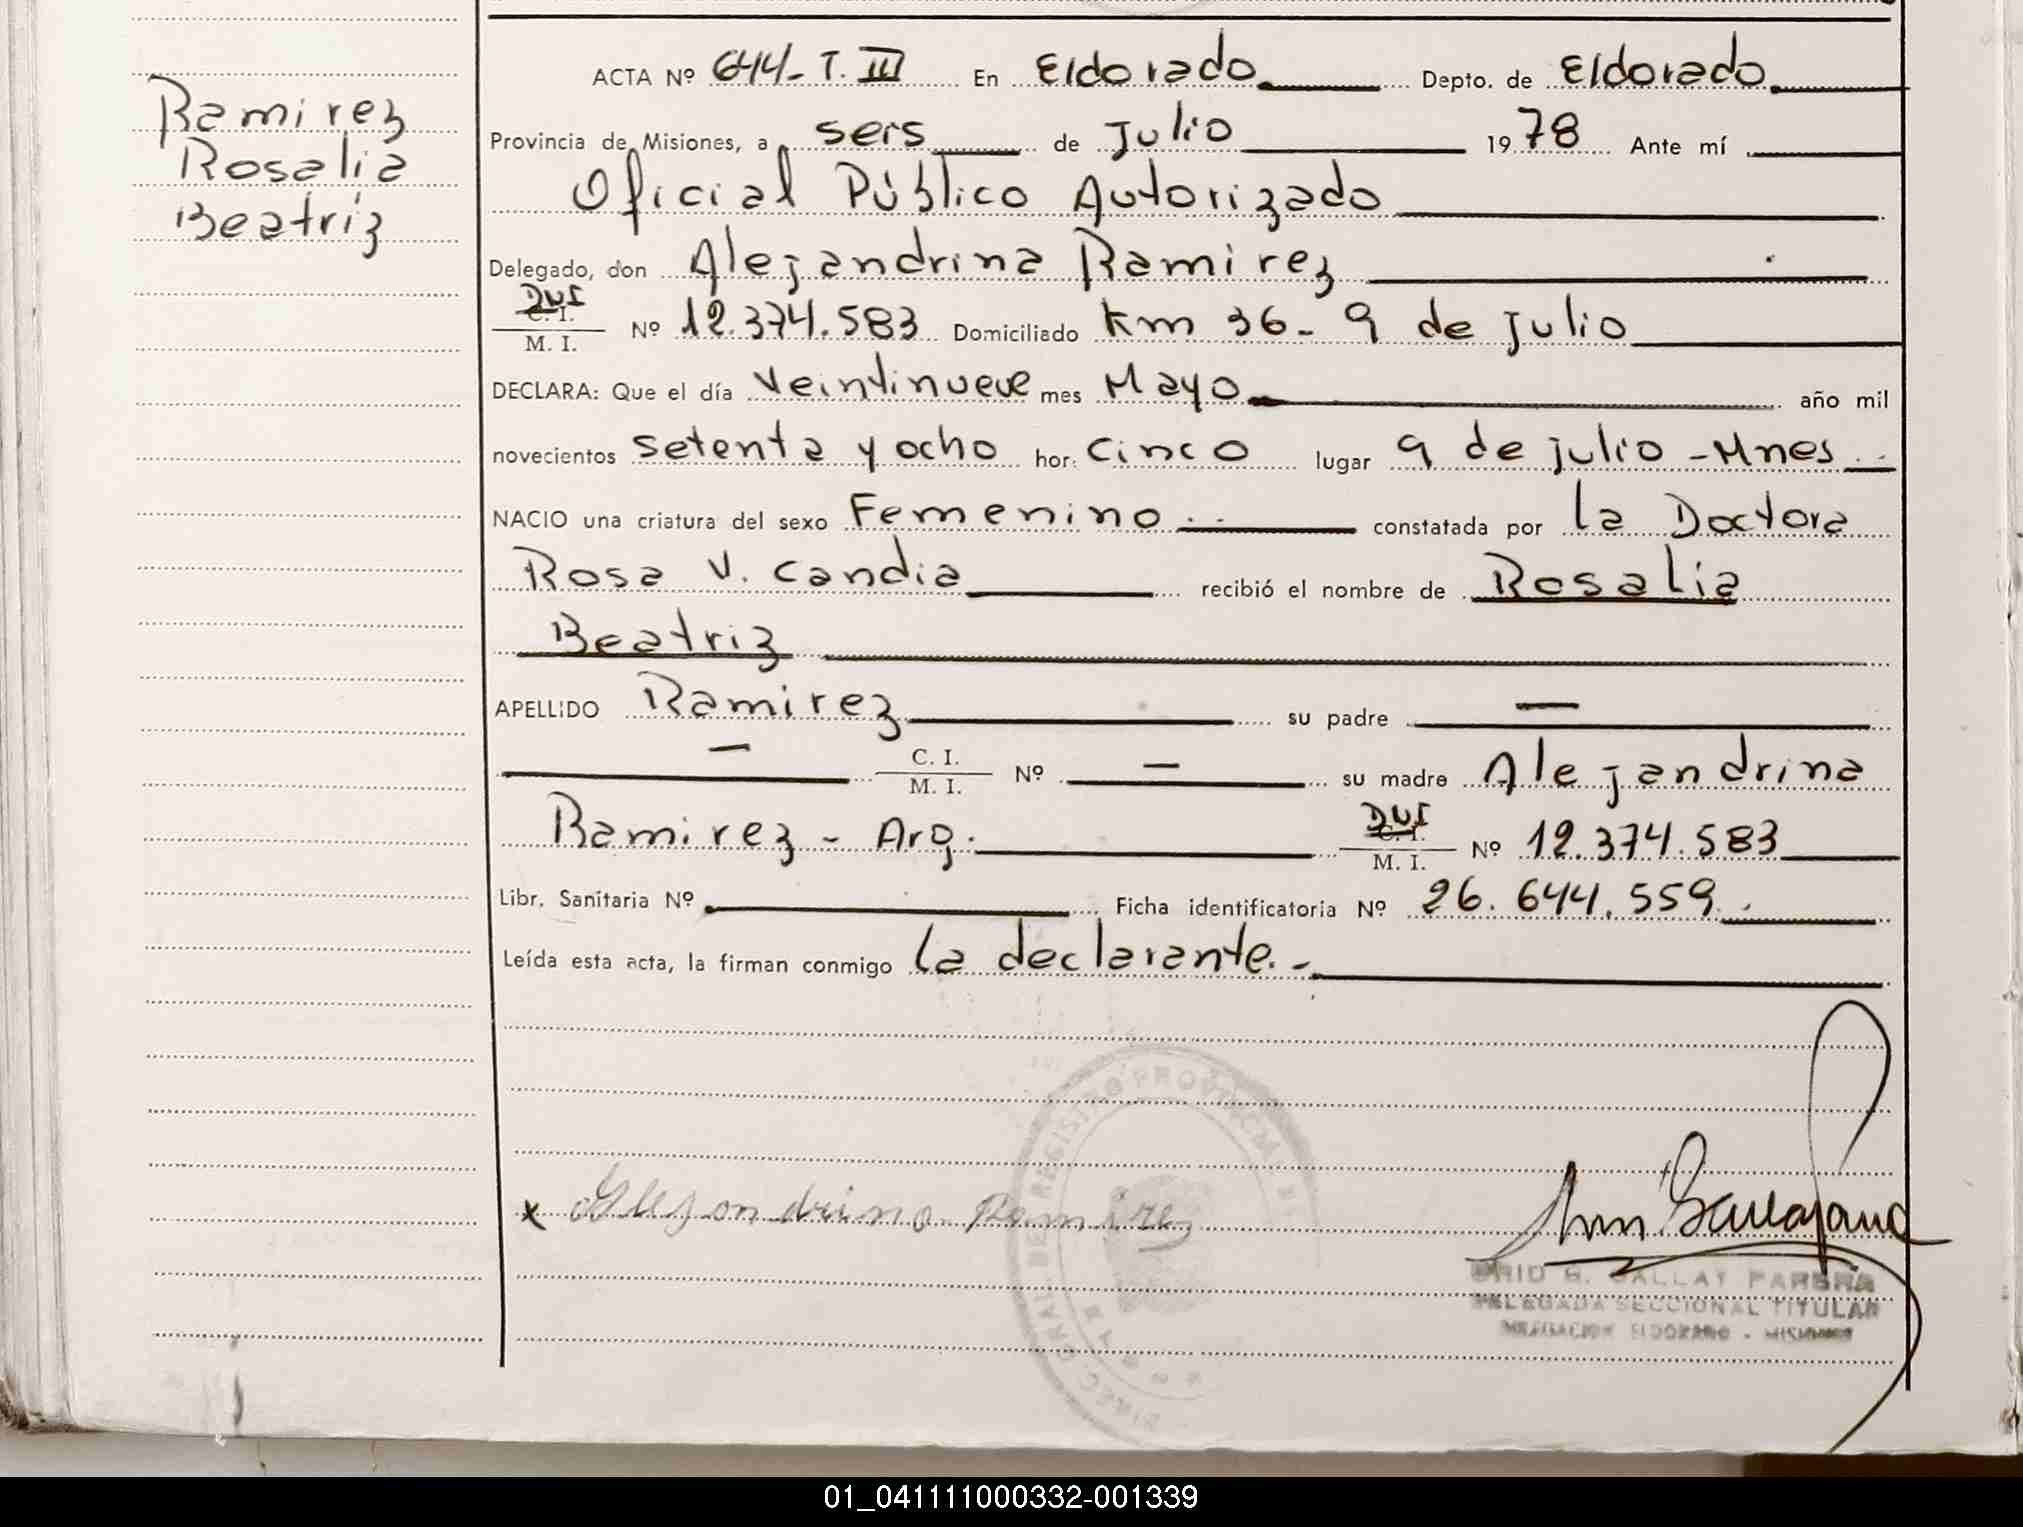 Ramirez
Rosalia
Beatriz
ACTA Nº 644-T. III En Eldorado Depto. de Eldorado
Provincia de Misiones, a seis de Julio 1978 Ante mí
Oficial Público Autorizado
Delegado, don Alejandrina Ramirez
DNI
C. I.
M. I. Nº 12.374.583 Domiciliado Km 36 - 9 de julio
DECLARA: Que el día veintinueve mes Mayo año mil
novecientos setenta y ocho hor. cinco lugar 9 de julio - Mnes
NACIO una criatura del sexo Femenino constatada por la Doctora
Rosa V. Candia recibió el nombre de Rosalia
Beatriz
APELLIDO Ramirez su padre —
— C. I. M. I. Nº — su madre Alejandrina
Ramirez - Arg. DNI C. I. M. I. Nº 12.374.583
Libr. Sanitaria Nº Ficha identificatoria Nº 26.644.559
Leída esta acta, la firman conmigo la declarante. -
x Alejandrina Ramirez
PARERA
DELEGADA SECCIONAL TITULAR
DELEGACION ELDORADO - MISIONES
01_041111000332-001339